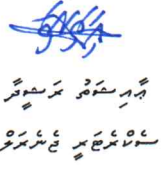 ޢާއިޝަތު ރަޝީދާ
ސެކްރެޓަރީ ޖެނެރަލް